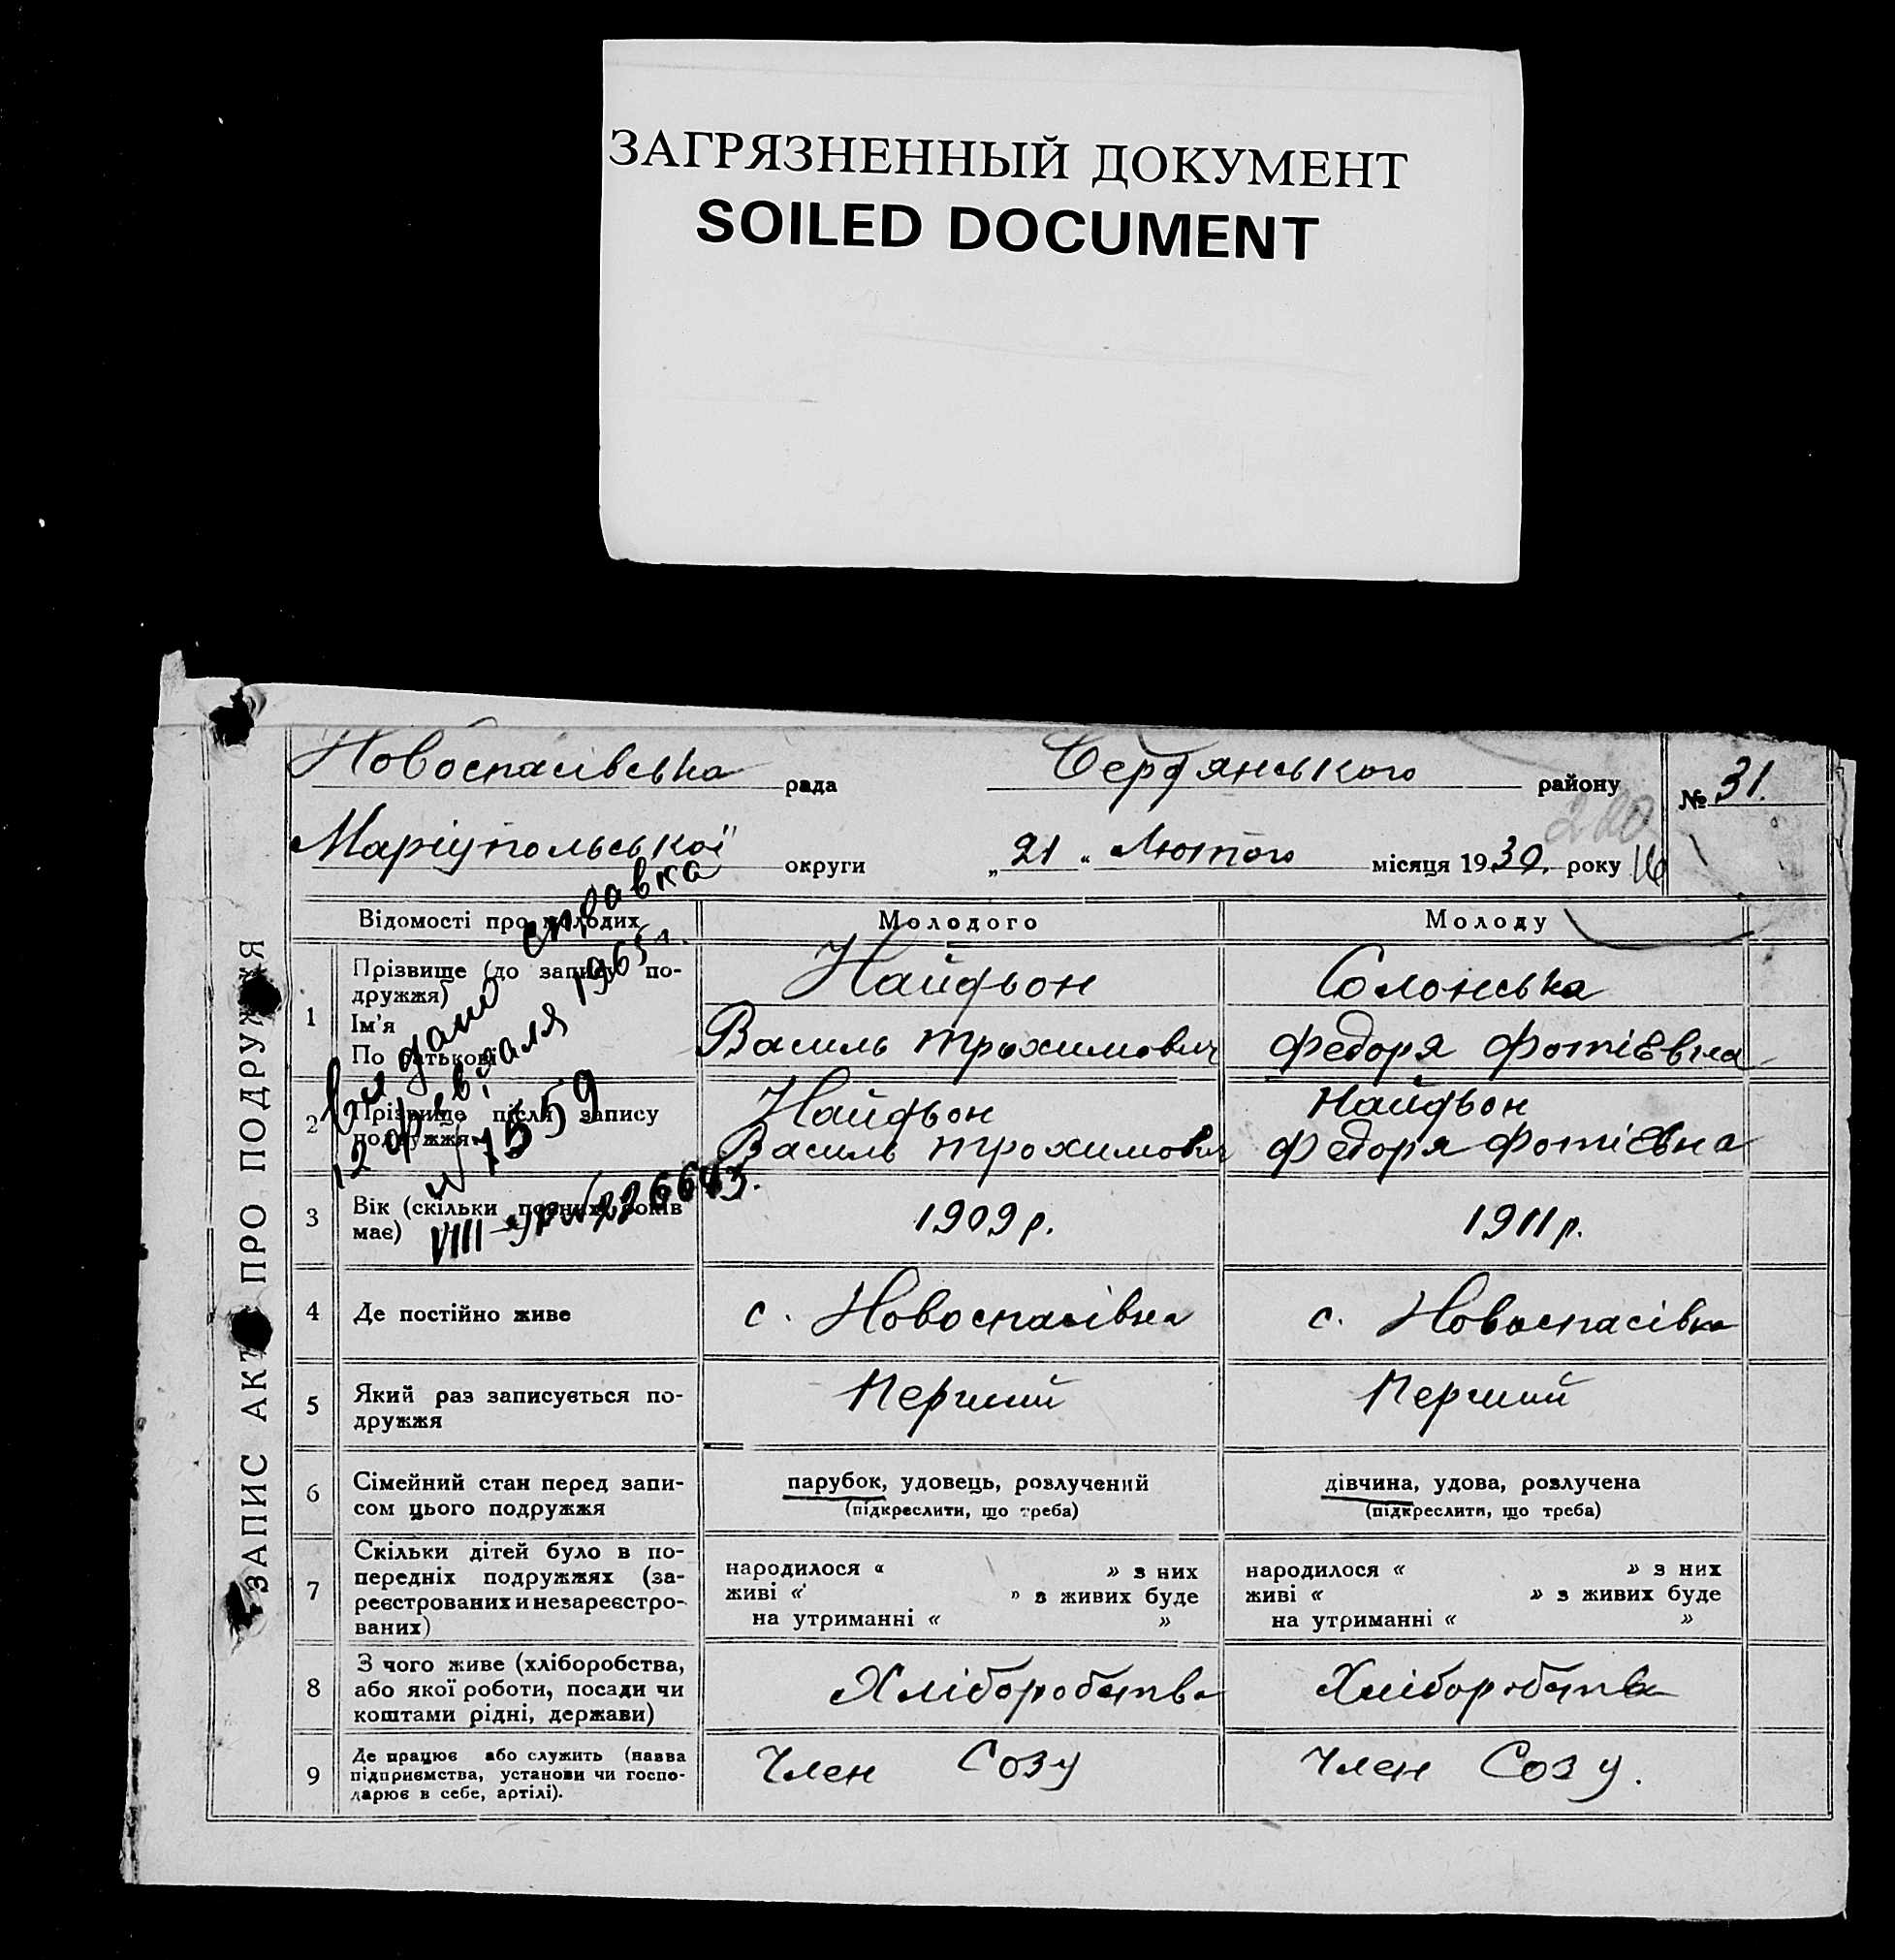 ЗАГРЯЗНЕННЫЙ ДОКУМЕНТ
SOILED DOCUMENT
Новоспасівська рада Бердянського району № 31.
Маріупольської округи „21“ Лютого місяця 1930. року
ЗАПИС АКТ ПРО ПОДРУЖЖЯ
Відомості про молодих Молодого Молоду
1 Прізвище (до запису подружжя) Найдьон Солонська
Ім'я
По батькові Василь Трохимович Федоря Фотієвна
2 Прізвище після запису Найдьон Найдьон
подружжя Василь Трохимович Федоря Фотієвна
3 Вік (скільки повних років 1909 р. 1911 р.
має)
4 Де постійно живе с. Новоспасівка с. Новоспасівка
5 Який раз записується по- Перший Перший
дружжя
6 Сімейний стан перед запи- парубок, удовець, розлучений дівчина, удова, розлучена
сом цього подружжя (підкреслити, що треба) (підкреслити, що треба)
7 Скільки дітей було в по-
передніх подружжях (за- народилося « » з них народилося « » з них
реєстрованих и незареєстро- живі « » з живих буде живі « » з живих буде
ваних) на утриманні « » на утриманні « »
8 З чого живе (хліборобства,
або якої роботи, посади чи Хліборобства Хліборобства
коштами рідні, держави)
9 Де працює або служить (назва Член Созу Член Созу.
підприємства, установи чи госпо-
дарює в себе, артілі).
справка
12 февраля 1965 г.
N 7559
VIII-УР № 226643.